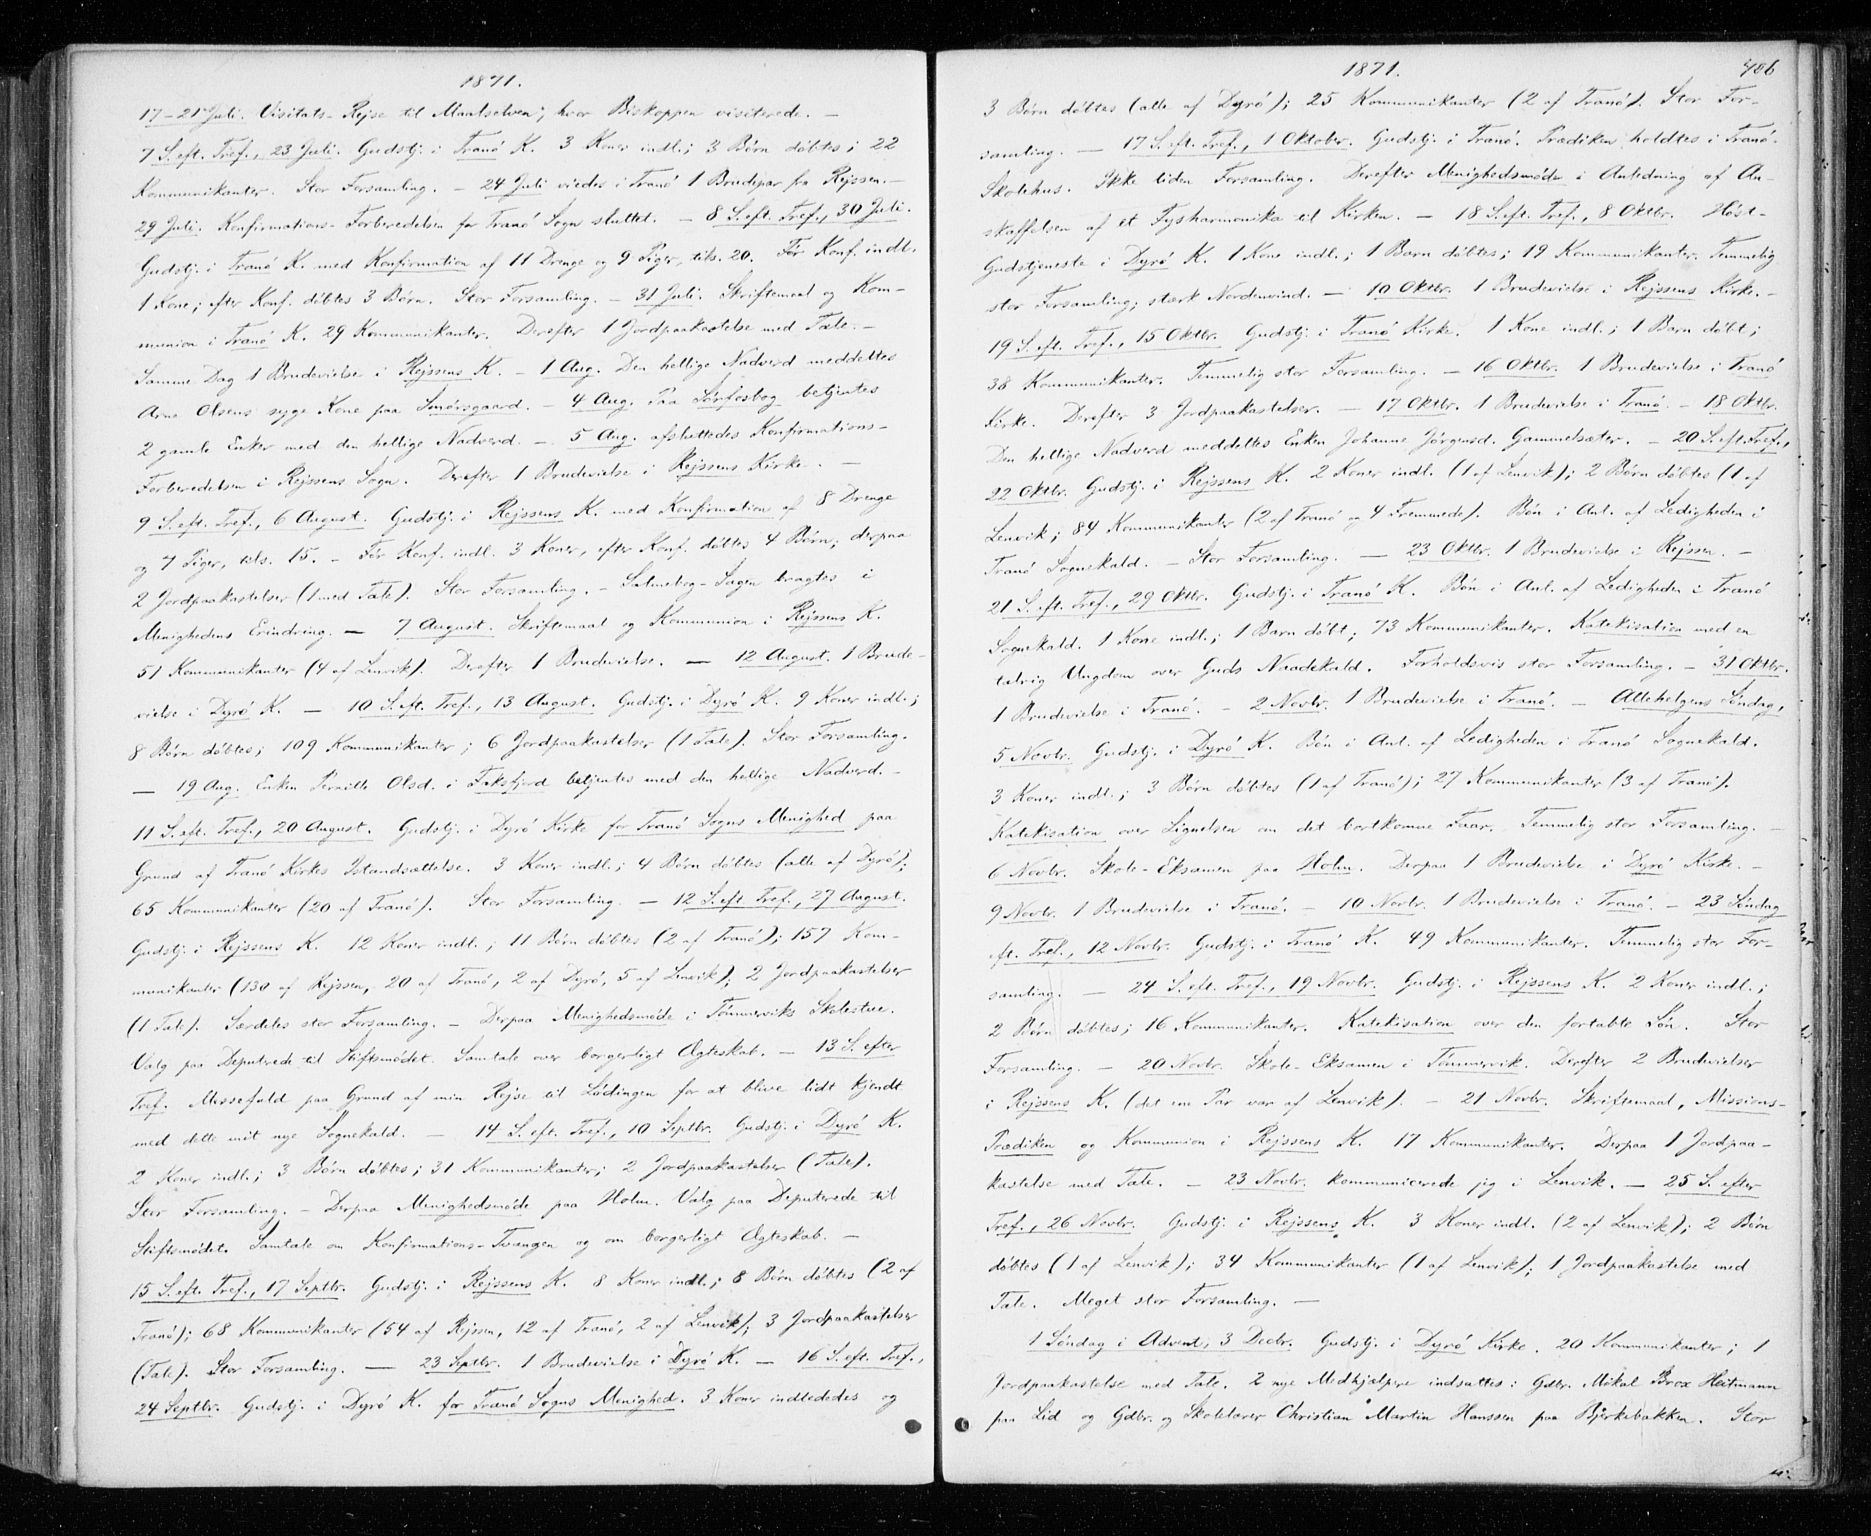 1871.
17-21 Juli. Visitats-Rejse til Maalselven, hvor Biskoppen visiterede. –
7 S. eft. Tref., 23 Juli. Gudstj. i Tranö K. 3 Koner indl.; 3 Börn döbtes; 22
Kommunikanter. Stor Forsamling. – 24 Juli viedes i Tranö 1 Brudepar fra Rejssen. –
29 Juli. Konfirmations-Forberedelsen for Tranö Sogn sluttet. – 8 S. eft. Tref., 30 Juli.
Gudstj. i Tranö K. med Konfirmation af 11 Drenge og 9 Piger, tils. 20. För Konf. indl.
1 Kone; efter Konf. döbtes 3 Börn. Stor Forsamling. – 31 Juli. Skriftemaal og Kom-
munion i Tranö K. 29 Kommunikanter. Derefter 1 Jordpaakastelse med Tale. –
Samme Dag 1 Brudevielse i Rejssens K. – 1 Aug. Den hellige Nadverd meddeltes
Arne Olsens syge Kone paa Smörsgaard. – 4 Aug. Paa Sörfosbog betjentes
2 gamle Enker med den hellige Nadverd. – 5 Aug. afsluttedes Konfirmations-
Forberedelsen i Rejssens Sogn. Derefter 1 Brudevielse i Rejssens Kirke. –
9 S. eft. Tref., 6 August. Gudstj. i Rejssens K. med Konfirmation af 8 Drenge
og 7 Piger, tils. 15. – För Konf. indl. 3 Koner, efter Konf. döbtes 4 Börn; derpaa
2 Jordpaakastelser (1 med Tale). Stor Forsamling. – Salmebog-Sagen bragtes i
Menighedens Erindring. – 7 August. Skriftemaal og Kommunion i Rejssens K.
51 Kommunikanter (4 af Lenvik). Derefter 1 Brudevielse. – 12 August. 1 Brude-
vielse i Dyrö K. – 10 S. eft. Tref., 13 August. Gudstj. i Dyrö K. 9 Koner indl.;
8 Börn döbtes; 109 Kommunikanter; 6 Jordpaakastelser (1 Tale). Stor Forsamling.
– 19 Aug. Enken Pernille Olsd. i Faksfjord betjentes med den hellige Nadverd. –
11 S. eft. Tref., 20 August. Gudstj. i Dyrö Kirke for Tranö Sogns Menighed paa
Grund af Tranö Kirkes Istandsættelse. 3 Koner indl.; 4 Börn döbtes (alle af Dyrö);
65 Kommunikanter (20 af Tranö). Stor Forsamling. – 12 S. eft. Tref., 27 August.
Gudstj. i Rejssens K. 12 Koner indl.; 11 Börn döbtes (2 af Tranö); 157 Kom-
munikanter (130 af Rejssen, 20 af Tranö, 2 af Dyrö, 5 af Lenvik); 2 Jordpaakastelser
(1 Tale). Særdeles stor Forsamling. – Derpaa Menighedsmöde i Tömmerviks Skolestue.
Valg paa Deputrede til Stiftsmödet. Samtale over borgerligt Ægteskab. – 13 S. efter
Tref. Messefald paa Grund af min Rejse til Lödingen for at blive lidt kjendt
med dette mit nye Sognekald. – 14 S. eft. Tref., 10 Septbr. Gudstj. i Dyrö K.
2 Koner indl.; 3 Börn döbtes; 31 Kommunikanter; 2 Jordpaakastelser (Tale).
Stor Forsamling. – Derpaa Menighedsmöde paa Holm. Valg paa Deputerede til
Stiftsmödet. Samtale om Konfirmations-Tvangen og om borgerligt Ægteskab. –
15 S. eft. Tref., 17 Septbr. Gudstj. i Rejssens K. 8 Koner indl.; 8 Börn döbtes (2 af
Tranö); 68 Kommunikanter (54 af Rejssen, 12 af Tranö, 2 af Lenvik); 3 Jordpaakastelser
(Tale). Stor Forsamling. – 23 Septbr. 1 Brudevielse i Dyrö K. – 16 S. eft. Tref.,
24 Septbr. Gudstj. i Dyrö K. for Tranö Sogns Menighed. 3 Koner indlededes og
1871. 406
3 Börn döbtes (alle af Dyrö); 25 Kommunikanter (2 af Tranö). Stor For-
samling. – 17 S. eft. Tref., 1 Oktober. Gudstj. i Tranö. Prædiken holdtes i Tranö-
Skolehus. Ikke liden Forsamling. Derefter Menighedsmöde i Anledning af An-
skaffelsen af et Fysharmonika til Kirken. – 18 S. eft. Tref., 8 Oktbr. Höst-
Gudstjeneste i Dyrö K. 1 Kone indl.; 1 Barn döbtes; 19 Kommunikanter. Temmelig
stor Forsamling; stærk Nordenvind. – 10 Oktbr. 1 Brudevielse i Rejssens Kirke. –
19 S. eft. Tref., 15 Oktbr. Gudstj. i Tranö Kirke. 1 Kone indl.; 1 Barn döbt;
38 Kommunikanter. Temmelig stor Forsamling. – 16 Oktbr. 1 Brudevielse i Tranö
Kirke. Derefter 3 Jordpaakastelser. – 17 Oktbr. 1 Brudevielse i Tranö. – 18 Oktbr.
Den hellige Nadverd meddeltes Enken Johanne Jörgensd. Gammelsæter. – 20 S. eft. Tref.,
22 Oktbr. Gudstj. i Rejssens K. 2 Koner indl. (1 af Lenvik); 2 Börn döbtes (1 af
Lenvik; 84 Kommunikanter (2 af Tranö og 4 Fremmede). Bön i Anl. af Ledigheden i
Tranö Sognekald. – Stor Forsamling. – 23 Oktbr. 1 Brudevielse i Rejssen. –
21 S. eft. Tref., 29 Oktbr. Gudstj. i Tranö K. Bön i Anl. af Ledigheden i Tranö
Sognekald. 1 Kone indl.; 1 Barn döbt; 73 Kommunikanter. Katekisation med en
talrig Ungdom over Guds Naadekald. Forholdsvis stor Forsamling. – 31 Oktbr.
1 Brudevielse i Tranö. – 2 Novbr. 1 Brudevielse i Tranö. – Allehelgens Söndag,
5 Novbr. Gudstj. i Dyrö K. Bön i Anl. af Ledigheden i Tranö Sognekald.
3 Koner indl.; 3 Börn döbtes (1 af Tranö); 27 Kommunikanter (3 af Tranö).
Katekisation over Lignelsen om det bortkomne Faar. Temmelig stor Forsamling. –
6 Novbr. Skole-Eksamen paa Holm. Derpaa 1 Brudevielse i Dyrö Kirke. –
9 Novbr. 1 Brudevielse i Tranö. – 10 Novbr. 1 Brudevielse i Tranö. – 23 Söndag
eft. Tref., 12 Novbr. Gudstj. i Tranö K. 49 Kommunikanter. Temmelig stor For-
samling. – 24 S. eft. Tref., 19 Novbr. Gudstj. i Rejssens K. 2 Koner indl.;
2 Börn döbtes; 16 Kommunikanter. Katekisation over den fortabte Sön. Stor
Forsamling. – 20 Novbr. Skole-Eksamen i Tömmervik. Derefter 2 Brudevielser
i Rejssens K. (det ene Par var af Lenvik). – 21 Novbr. Skriftemaal, Missions-
Prædiken og Kommunion i Rejssens K. 17 Kommunikanter. Derpaa 1 Jordpaa-
kastelse med Tale. – 23 Novbr. kommunicerede jeg i Lenvik. – 25 S. efter
Tref., 26 Novbr. Gudstj. i Rejssens K. 3 Koner indl. (2 af Lenvik); 2 Börn
döbtes (1 af Lenvik); 34 Kommunikanter (1 af Lenvik); 1 Jordpaakastelse med
Tale. Meget stor Forsamling. –
1 Söndag i Advent, 3 Decbr. Gudstj. i Dyrö Kirke. 20 Kommunikanter; 1
Jordpaakastelse med Tale. 2 nye Medhjælpere indsattes: Gdbr. Mikal Brox Heitmann
paa Lid og Gdbr. og Skolelærer Christian Martin Hanssen paa Bjerkebakken. Stor